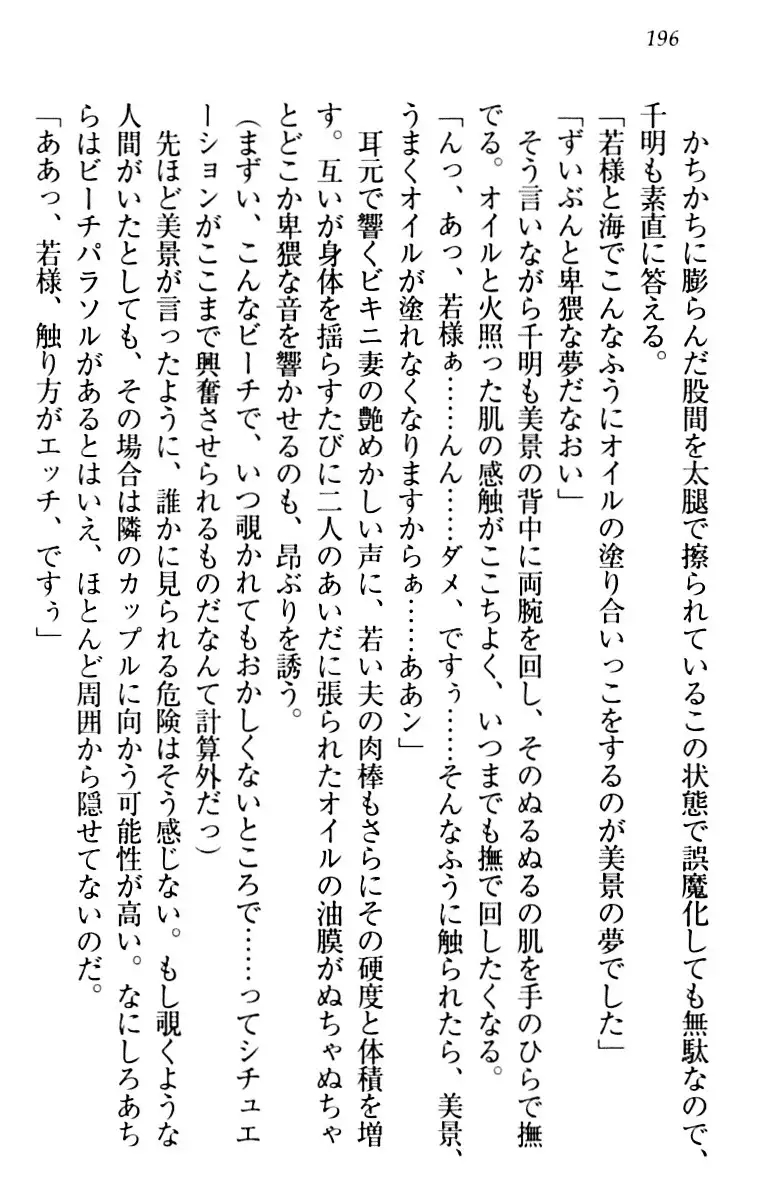 196
かちかちに膨らんだ股間を太腿で擦られているこの状態で誤魔化しても無駄なので、
千明も素直に答える。
「若様と海でこんなふうにオイルの塗り合いっこをするのが美景の夢でした」
「ずいぶんと卑猥な夢だなおい」
そう言いながら千明も美景の背中に両腕を回し、そのぬるぬるの肌を手のひらで撫
でる。オイルと火照った肌の感触がここちよく、いつまでも撫で回したくなる。
「んっ、あっ、若様ぁ……んん……ダメ、ですぅ……そんなふうに触られたら、美景、
うまくオイルが塗れなくなりますからぁ……ああン」
耳元で響くビキニ妻の艶めかしい声に、若い夫の肉棒もさらにその硬度と体積を増
す。互いが身体を揺らすたびに二人のあいだに張られたオイルの油膜がぬちゃぬちゃ
とどこか卑猥な音を響かせるのも、昂ぶりを誘う。
（まずい、こんなビーチで、いつ覗かれてもおかしくないところで……ってシチュエ
ーションがここまで興奮させられるものだなんて計算外だっ）
先ほど美景が言ったように、誰かに見られる危険はそう感じない。もし覗くような
人間がいたとしても、その場合は隣のカップルに向かう可能性が高い。なにしろあち
らはビーチパラソルがあるとはいえ、ほとんど周囲から隠せてないのだ。
「ああっ、若様、触り方がエッチ、ですぅ」